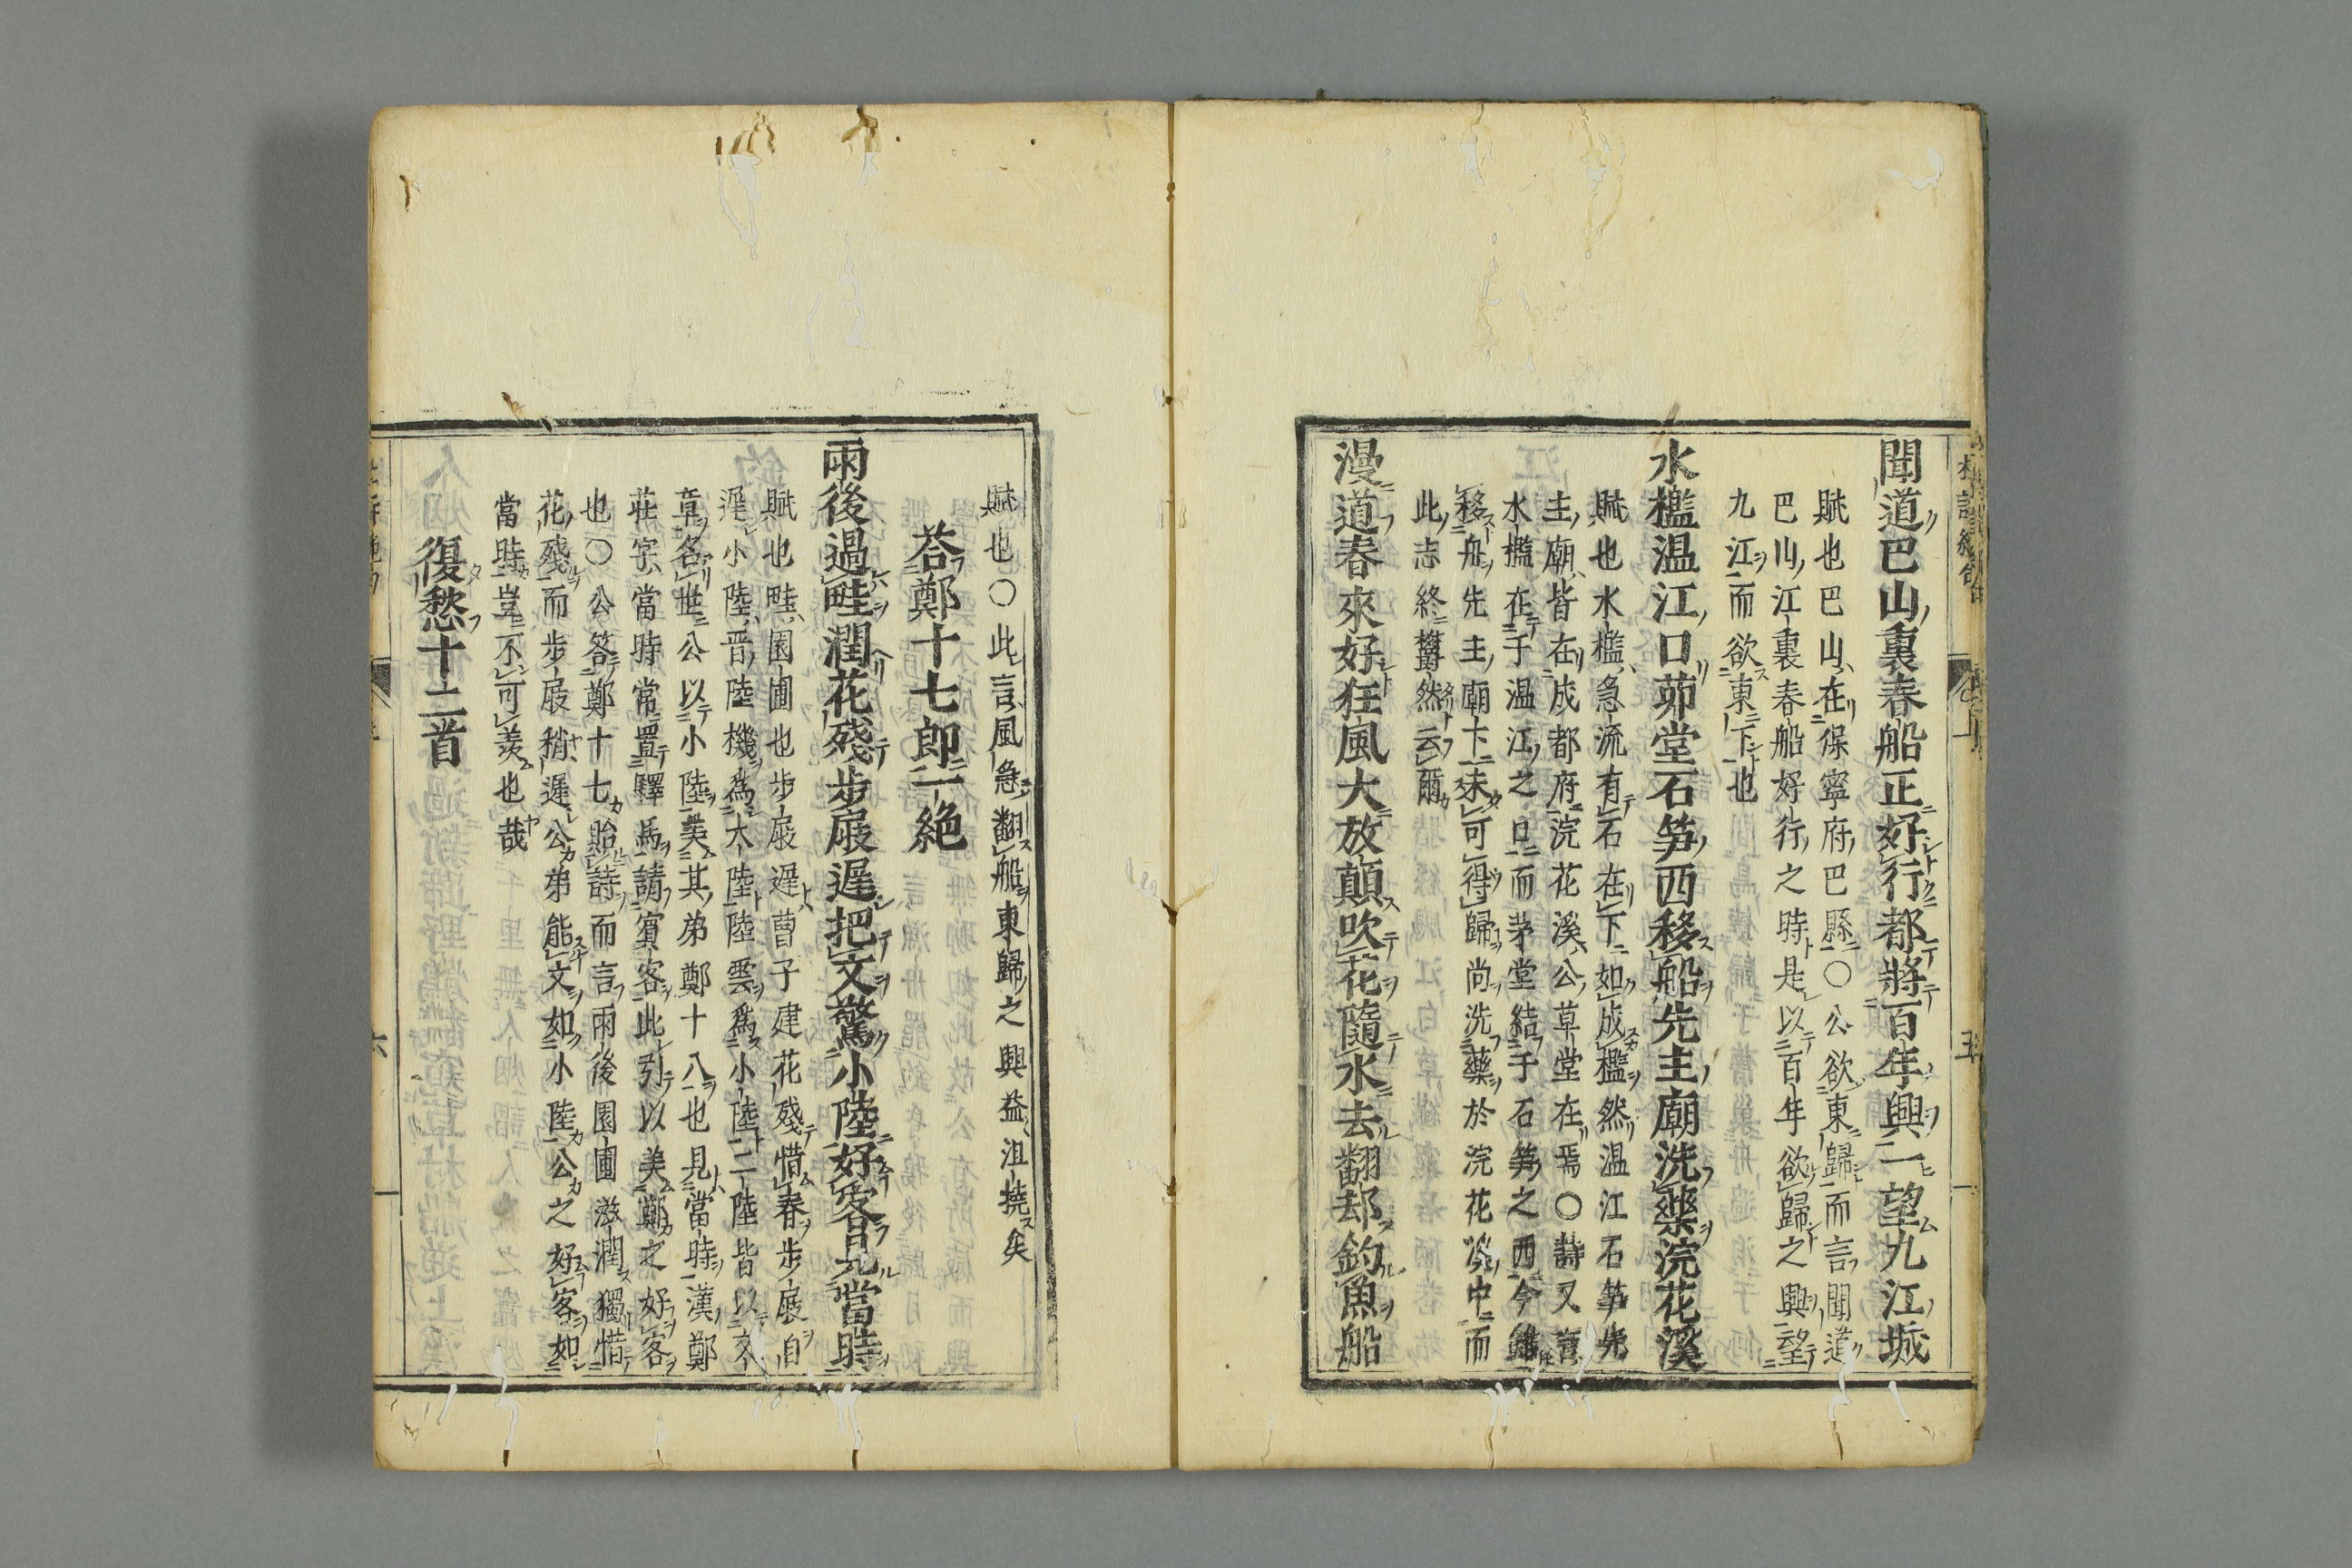 聞道巴山裏春船正好行都將百年興一望九江城
賦也巴山在保寧府巴縣○公欲東歸而言聞道
巴山江裏春船好行之時是以百年欲歸之興一望
九江而欲東下也
水檻温江口茆堂石笋西移船先主廟洗藥浣花溪
賦也水檻急流有石在下如成檻然温江石笋先
主廟皆在成都府浣花溪公草堂在焉○詩又言
水檻在于温江之口而茅堂結于石笋之西今雖
移舟先主廟下未可得歸尚洗藥於浣花溪中而
此志終欝然云爾
漫道春來好狂風大放顛吹花隨水去翻却釣魚船
五
賦也○此言風急翻船東歸之興益沮撓矣
荅鄭十七郎一絶
雨後過畦潤花殘步屐遲把文驚小陸好客見當時
賦也畦園圃也步屐遲曹子建花殘惜春步屐自
遲小陸晋陸機爲大陸陸雲爲小陸二陸皆以文
章名世公以小陸美其弟鄭十八也見當時漢鄭
莊字當時常置驛馬請賓客此引以美鄭之好客
也○公答鄭十七貽詩而言雨後園圃滋潤獨惜
花殘而步屐稍遲公弟能文如小陸公之好客如
當時豈不可羨也哉
復愁十二首
六